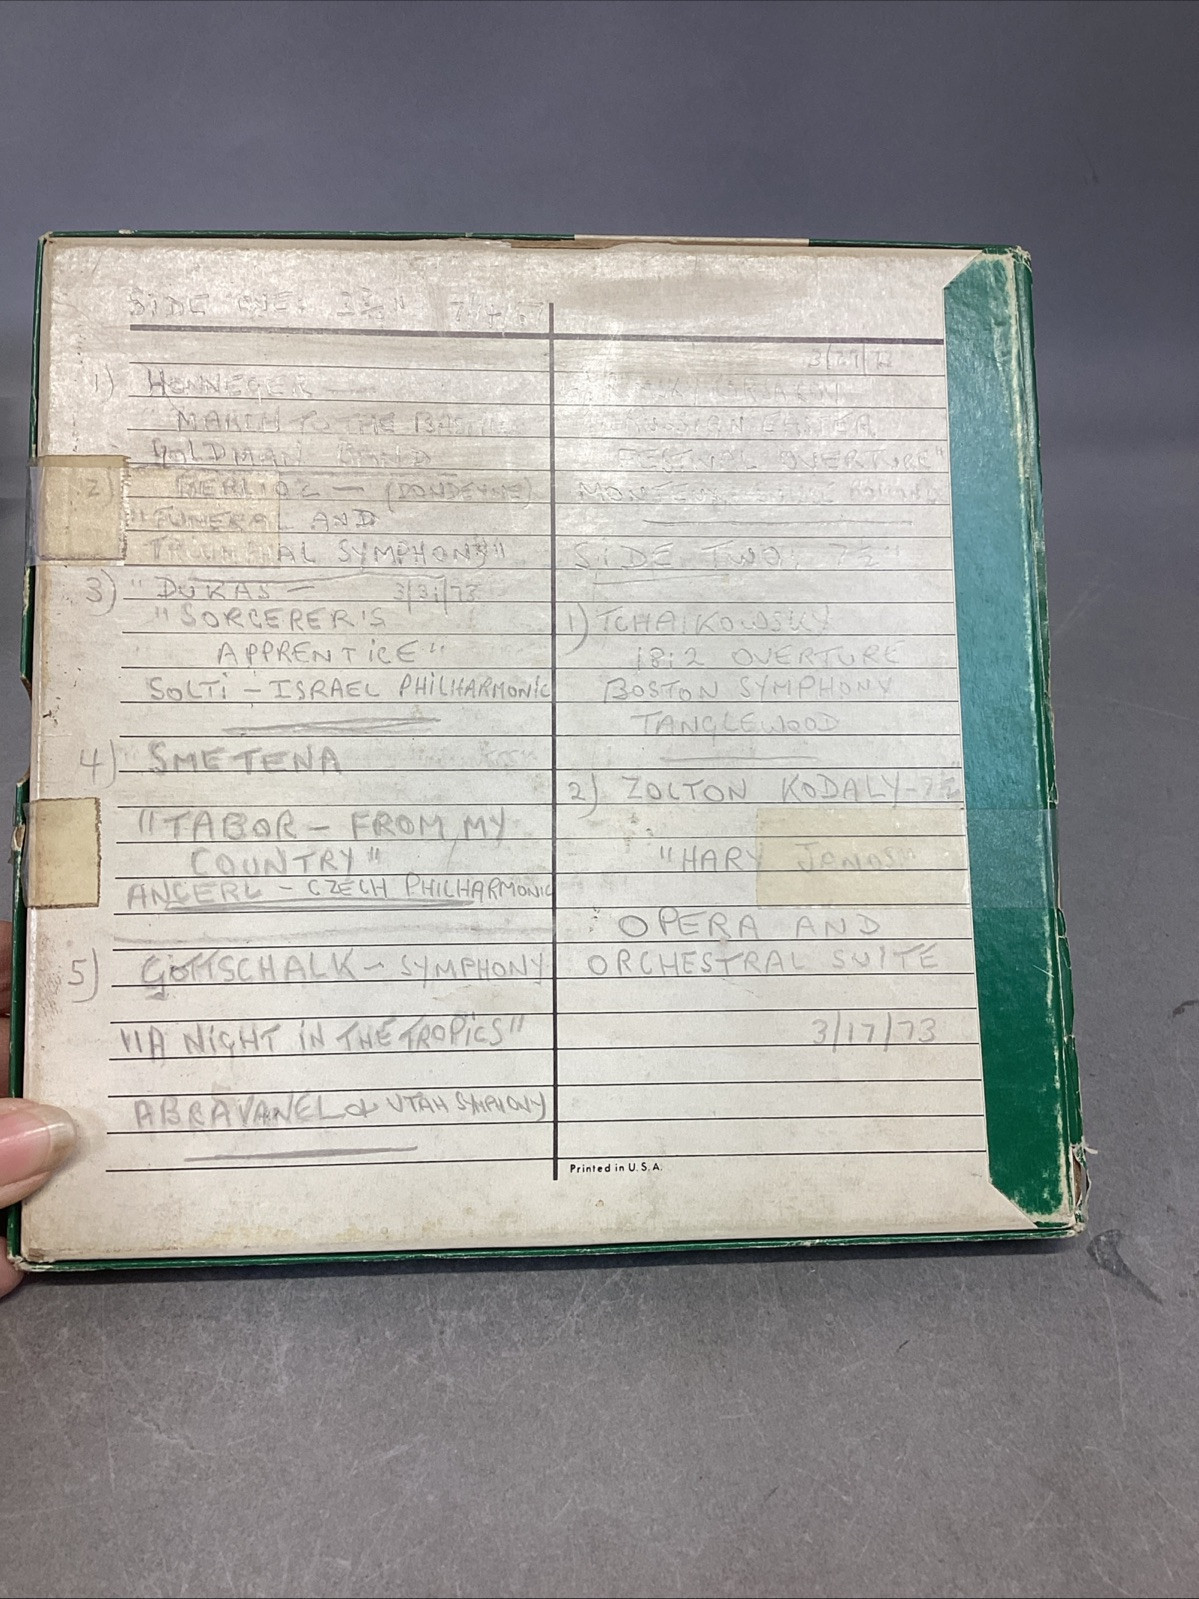 SIDE ONE:
1) HONNEGER —
MARCH TO THE
GOLDMAN BAND
2) BERLIOZ — (DONDEYNE)
"FUNERAL AND
TRIUMPHAL SYMPHONY"
3) "DUKAS — 3/31/73
"SORCERER'S
APPRENTICE"
SOLTI — ISRAEL PHILHARMONIC
4) SMETENA
"TABOR — FROM MY
COUNTRY"
ANCERL — CZECH PHILHARMONIC
5) GOTTSCHALK — SYMPHONY
"A NIGHT IN THE TROPICS"
ABRAVANEL & UTAH SYMPHONY
RUSSIAN EASTER
FESTIVAL OVERTURE"
SIDE TWO: 7½"
1) TCHAIKOWSKY
1812 OVERTURE
BOSTON SYMPHONY
TANGLEWOOD
2) ZOLTON KODALY — 7½"
"HARY JANOS"
OPERA AND
ORCHESTRAL SUITE
3/17/73
Printed in U.S.A.